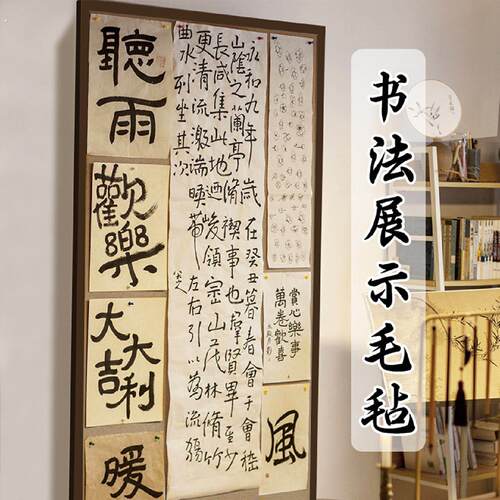 书法展示毛毡
聽雨
歡樂
大吉
大利
暖
永和九年歲在癸丑暮春會于會稽
山陰之蘭亭脩禊事也羣賢畢至少
長咸集此地迺峻領崇山茂林脩竹
更清流激湍暎帶左右引以為流觴
曲水列坐其次
賞心樂事
萬卷歡喜
風